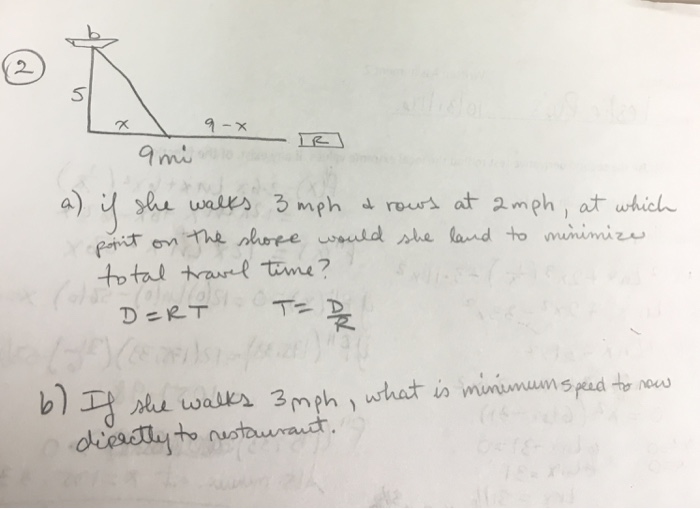 2
b
5
x 9-x R
9mi
a) if she walks 3 mph & rows at 2 mph, at which
point on the shore would she land to minimize
total travel time?
D = RT T = D/R
b) If she walks 3 mph, what is minimum speed to row
directly to restaurant.